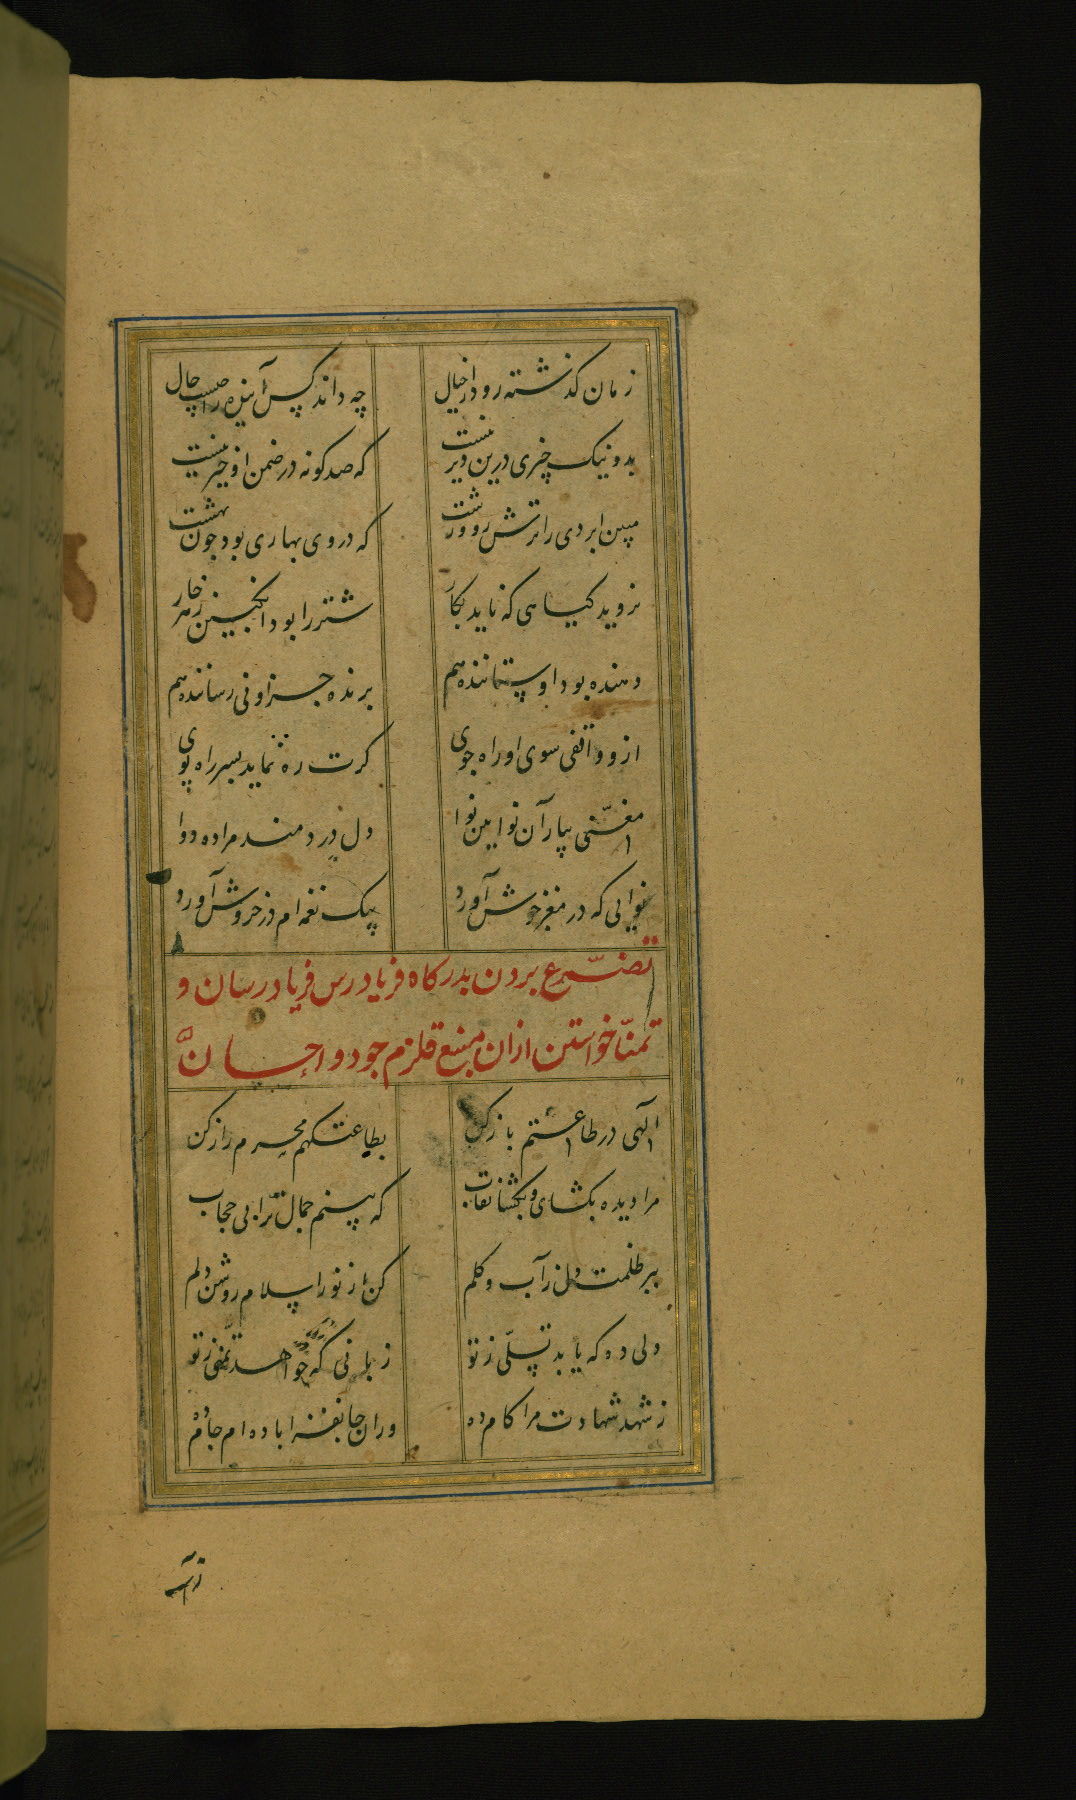 زمان کذشته رود از خیال چه داند کس آینده را چیست حال
بد و نیک چیزی درین دیر نیست که صد کونه در ضمن او خیر نیست
مبین ابر دی را ترش رو و زشت که در وی بهاری بود چون بهشت
نروید کیاهی که ناید بکار شتر را بود انکبین زهر خار
دهنده بود او ستاننده هم برنده جز او نی رساننده هم
ازو واقفی سوی او راه جوی کرت ره نماید بسر راه پوی
مغنّی بیار آن نوایین نوا دل دردمند مرا ده دوا
نوایی که در مغز جوش آورد بیک نغمه ام در خروش آورد
تضرّع بردن بدرکاه فریادرس فریادرسان و
تمنّا خواستن ازان منبع قلزم جود و احسان
الهی در طاعتم باز کن بطاعتکهم محرم راز کن
مرا دیده بکشای و بکشا نقاب که بینم جمال ترا بی حجاب
ببر ظلمت دل ز آب و کلم کن از نور اسلام روشن دلم
دلی ده که یابد تسلّی ز تو زبانی که خواهد تمنی ز تو
ز شهد شهادت مرا کام ده وزان جانفزا باده ام جام ده